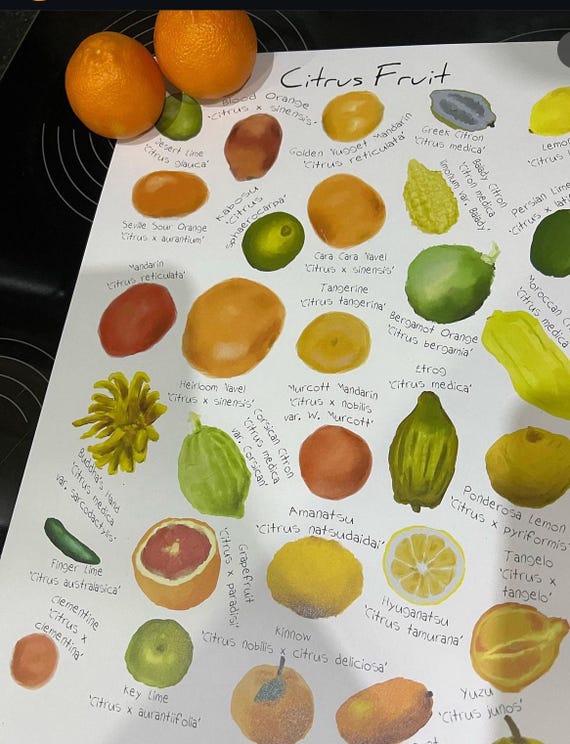 Citrus Fruit
Blood Orange
'Citrus x sinensis'
Desert Lime
'Citrus glauca'
Golden Nugget Mandarin
'Citrus reticulata'
Greek Citron
'Citrus medica'
Lemon
Seville Sour Orange
'Citrus x aurantium'
Kabosu
'Citrus
sphaerocarpa'
Cara Cara Navel
'Citrus x sinensis'
Balady Citron
'Citron medica
limonum var. Balady'
Persian Lime
'Citrus x
Mandarin
'Citrus reticulata'
Tangerine
'Citrus tangerina'
Bergamot Orange
'Citrus bergamia'
Moroccan
'Citrus medica
Heirloom Navel
'Citrus x sinensis'
Murcott Mandarin
'Citrus x nobilis
var. W. Murcott'
Etrog
'Citrus medica'
Buddha's Hand
'Citrus medica
var. sarcodactylis'
Corsican Citron
'Citrus medica
var. Corsican'
Amanatsu
'Citrus natsudaidai'
Ponderosa Lemon
'Citrus x pyriformis'
Finger Lime
'Citrus australasica'
Grapefruit
'Citrus x paradisi'
Hyuganatsu
'Citrus tamurana'
Tangelo
'Citrus x
tangelo'
Clementine
'Citrus x
clementina'
Key Lime
'Citrus x aurantiifolia'
Kinnow
'Citrus nobilis x citrus deliciosa'
Yuzu
'Citrus junos'